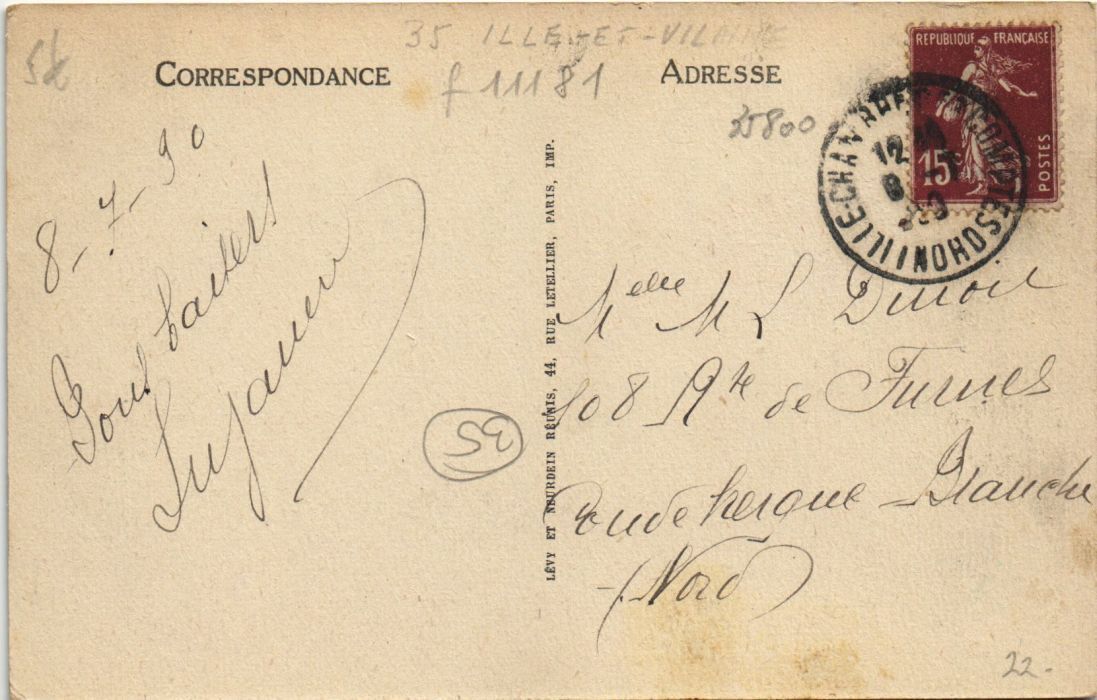 35 ILLE-ET-VILAINE
CORRESPONDANCE
f 11181
ADRESSE
25800
RÉPUBLIQUE FRANÇAISE
15c
POSTES
8-7-30
Bons baisers
Suzanne
35
LÉVY ET NEURDEIN RÉUNIS, 44, RUE LETELLIER, PARIS, IMP.
Melle M L
108 Rte de Furnes
Coudekerque-Blanche
(Nord)
22-